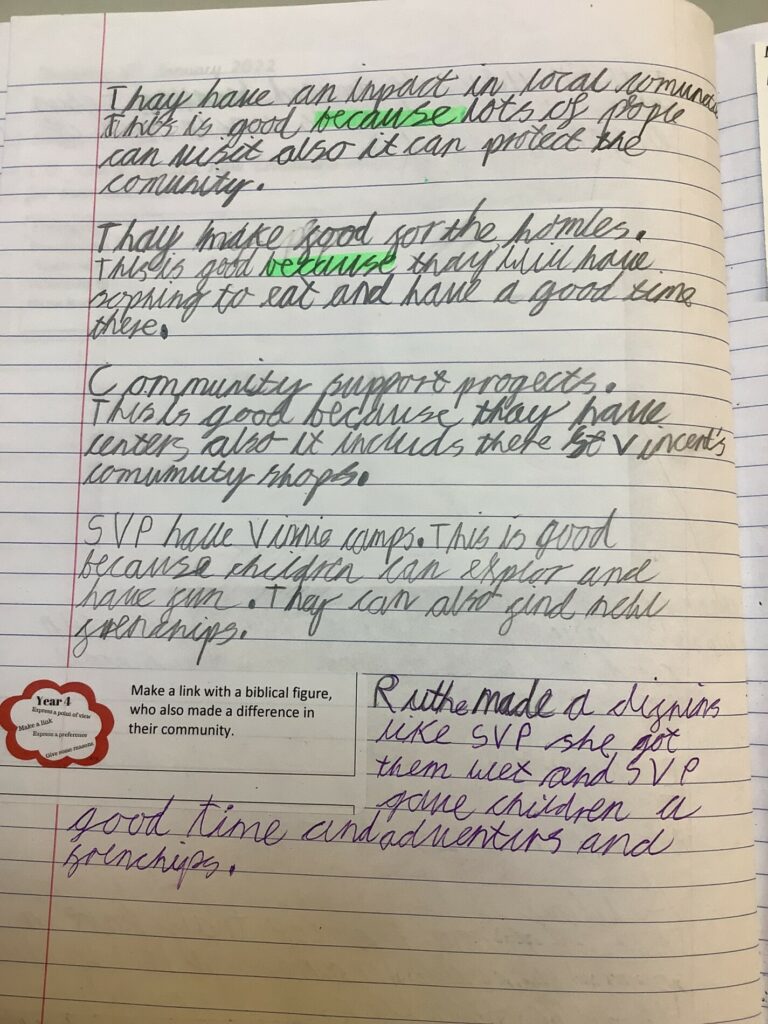 Thay have an inpact in local comunity
This is good because lots of pople
can visit also it can protect the
comunity.
Thay make food for the homles.
This is good because thay will have
sophing to eat and have a good time
there.
Community support progects.
This is good because thay have
centers also it includs there St Vincent's
comumuty shops.
SVP have Vinnie camps. This is good
because children can explor and
have fun. They can also find new
frendhips.
Year 4
Express a point of view
Make a link
Express a preference
Give some reasons
Make a link with a biblical figure,
who also made a difference in
their community.
Ruthe made a difrins
like SVP she got
them wet and SVP
gave children a
good time and adventirs and
frenchips.